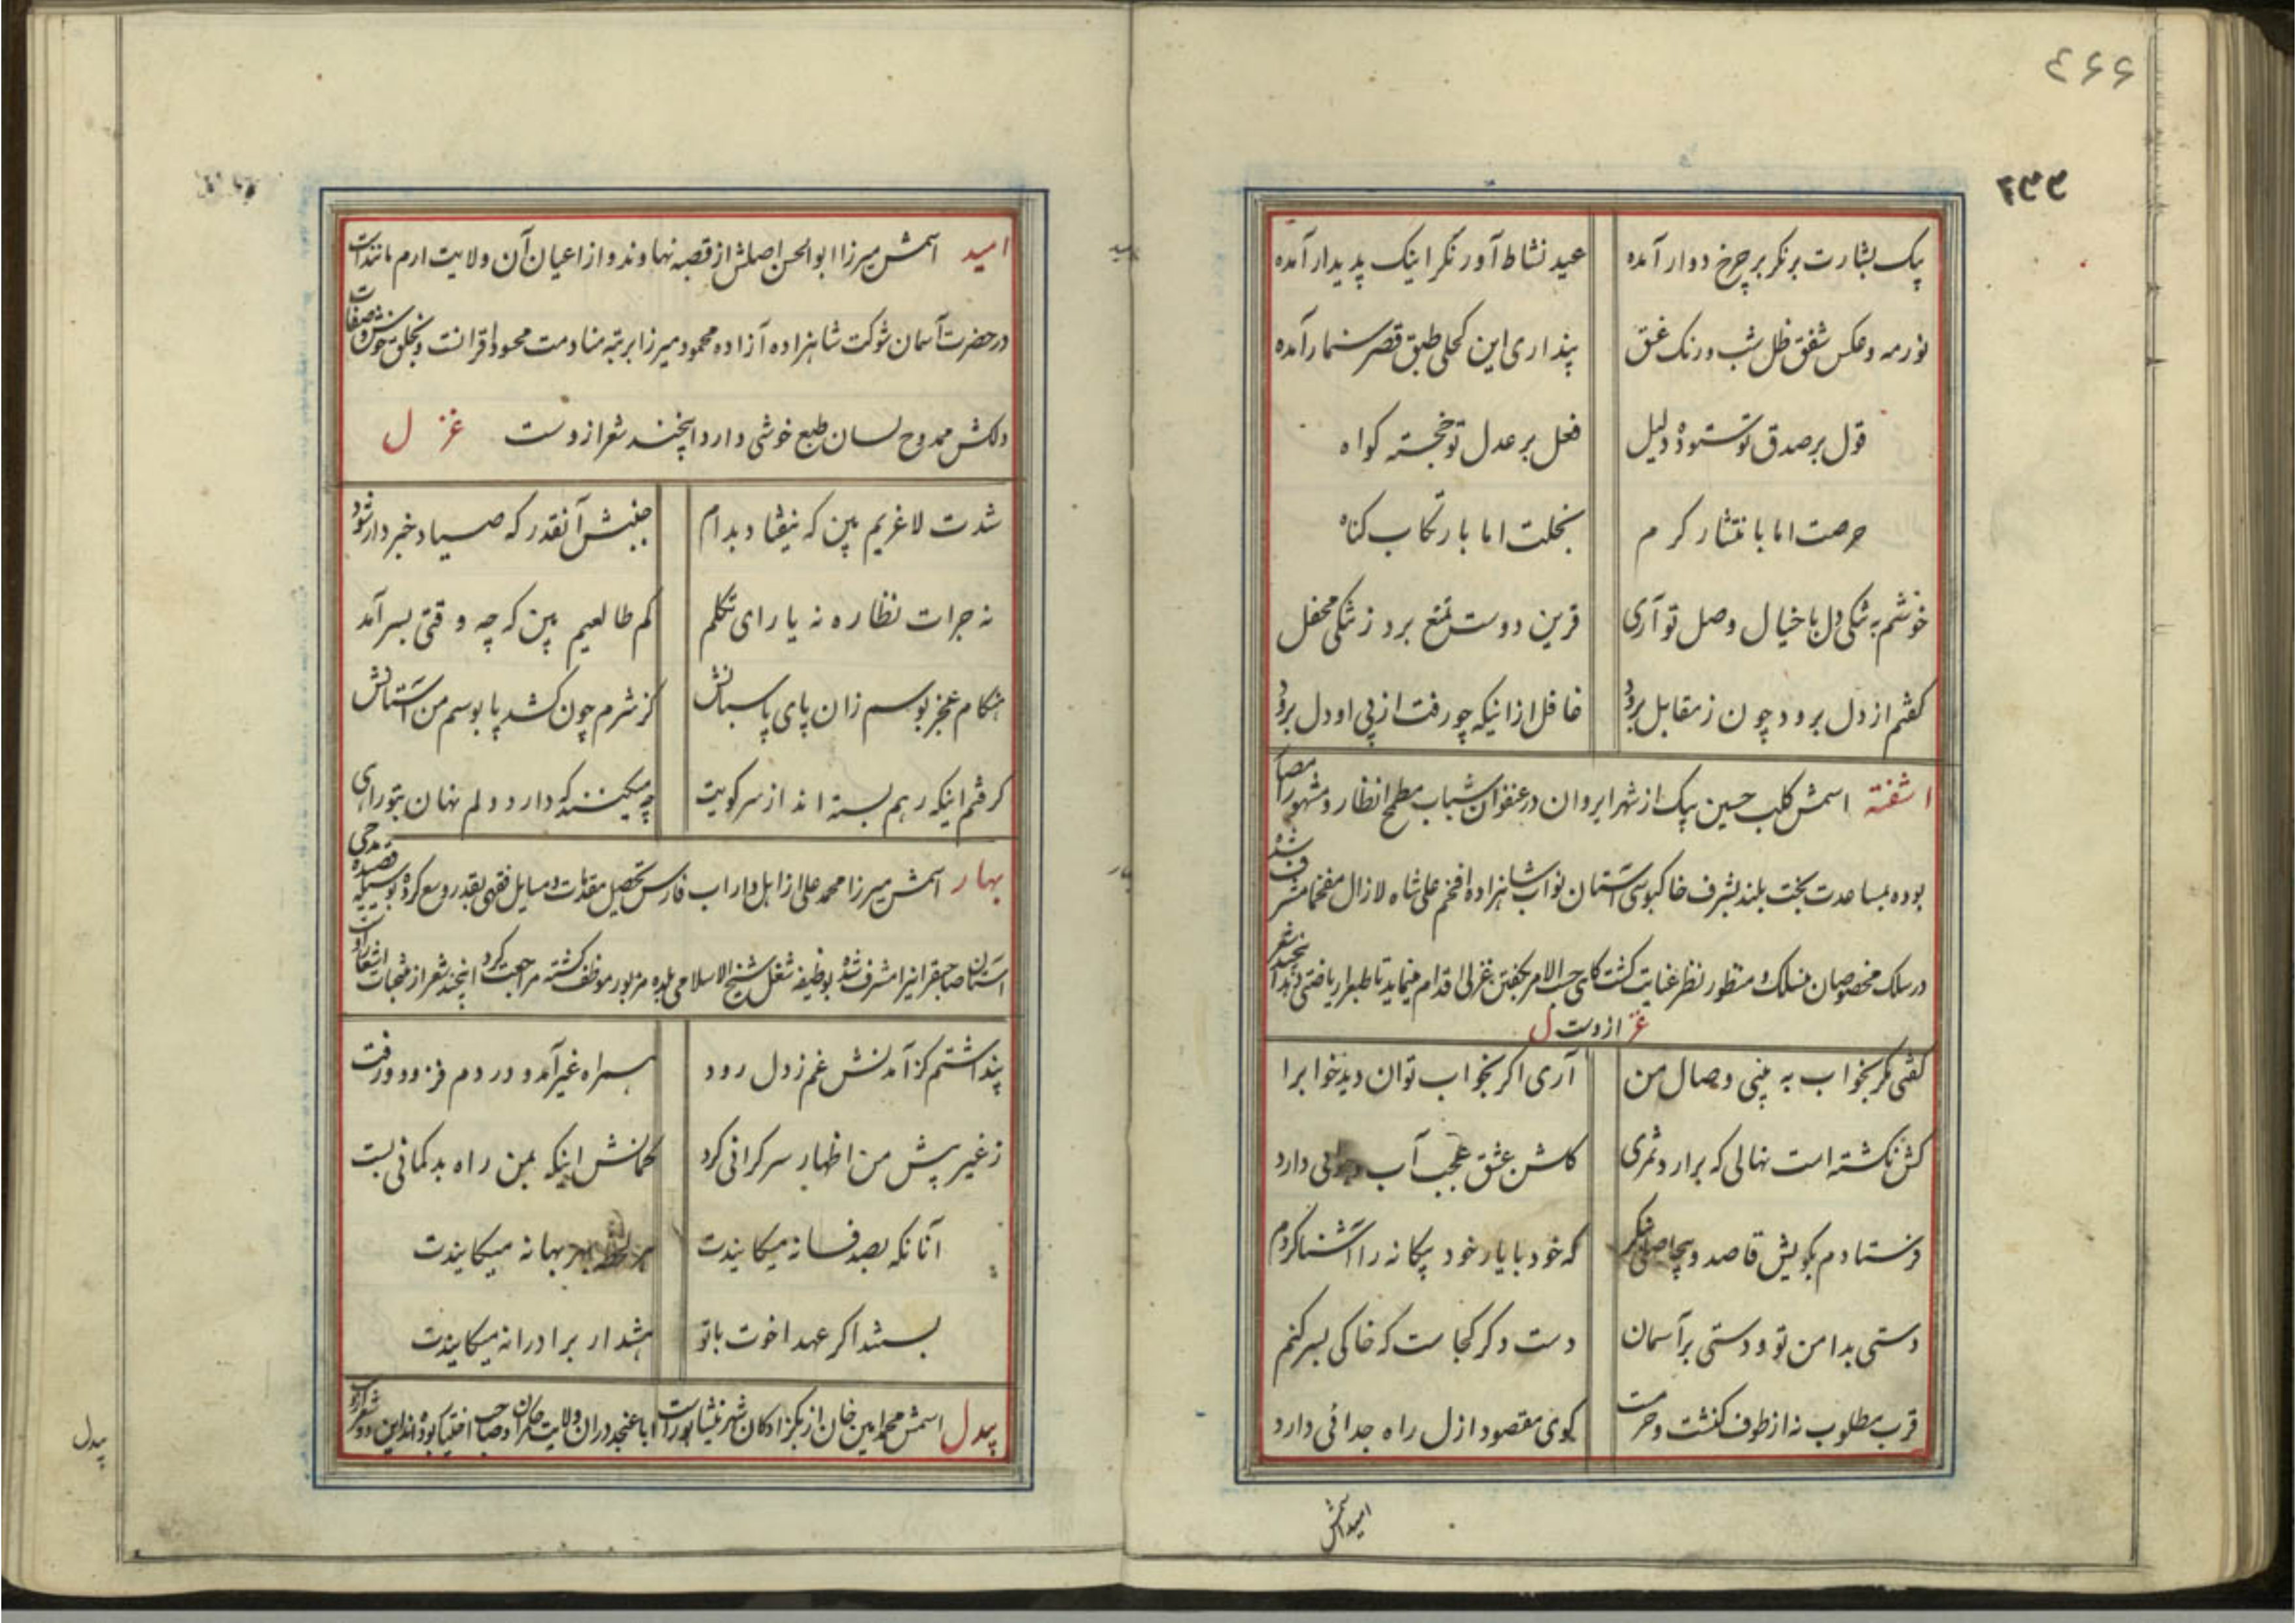 ۴۶۶
۲۳۳
پیک بشارت برنکر بر چرخ دوار آمده عید نشاط آور نکر اینک پدیدار آمده
نور مه و عکس شفق ظل شب و رنک غسق پنداری این کحلی طبق قصر سنمار آمده
قول بر صدق تو ستوده دلیل فعل بر عدل تو خجسته کواه
حرصت اما بانتشار کرم بخلت اما بارتکاب کناه
خوشم به تنکی دل با خیال وصل تو آری قرین دوست تمتع برد ز تنکی محفل
کفتم از دل برود چون ز مقابل برود غافل از اینکه چو رفت از پی او دل برود
اشفته اسمش کلب حسین بیک از شهر ایروان در عنفوان شباب مطمح انظار و مشهور
بوده بمساعدت بخت بلند بشرف خاکبوسی آستان نواب شاهزاده افخم علی شاه لازال مفخما مشرف شده
در سلک مخصوصان منسلک و منظور نظر عنایت کشت کاهی حسب الامر بکفتن غزلی اقدام مینماید تا طبعرا ریاضتی
غزل ازوست
کفتی مکر بخواب به بینی وصال من آری اکر بخواب توان دید خوابرا
کس نکشته است نهالی که برارد ثمری کلشن عشق عجب آب و هوائی دارد
فرستادم بکویش قاصد و که خود با یار خود بیکانه را آشنا کردم
دستی بدامن تو و دستی بر آسمان دست دکر کجاست که خاکی بسر کنم
قرب مطلوب نه از طوف کنشت و حرمت کوی مقصود از ل راه جدائی دارد
امید اسمش
امید اسمش میرزا ابوالحسن اصلش از قصبه نهاوند و از اعیان آن ولایت ارم مانند است
در حضرت آسمان شوکت شاهزاده آزاده محمود میرزا برتبه منادمت محسود اقرانست و بخلق خوش و صفات
دلکش ممدوح لسان طبع خوشی دارد اینچند شعر ازوست غزل
شدت لاغریم بین که نیفتاد بدام جنبش آنقدر که صیاد خبردار شود
نه جرات نظاره نه یارای تکلم کم طالعیم بین که چه وقتی بسر آمد
هنکام عجز بوسم زان پای پاسبانش کز شرم چون کشد پا بوسم من آستانش
کرفتم اینکه رهم بسته اند از سر کویت چه میکنند که دارد دلم نهان بتو راهی
بهار اسمش میرزا محمد علی از اهل داراب فارس تحصیل مقدمات و مسایل فقهی بقدر وسع کرده بوسیله قصیده مدحی
آستان صاحبقرانیرا مشرف شده بوظیفه شغل شیخ الاسلامی بلده مزبور موظف کشته مراجعت کرد اینچند شعر از منتخبات اشعار اوست
پنداشتم کز آمدنش غم ز دل رود همراه غیر آمد و دردم فزود و رفت
ز غیر پیش من اظهار سرکرانی کرد کمانش اینکه بمن راه بدکمانی بست
آنانکه بصد فسانه میکایندت هر لحظه بهر بهانه میکایندت
بستند اکر عهد اخوت با تو هشدار برادرانه میکایندت
بیدل اسمش محمد امین خان از بکزادکان شهر نیشابور است ابا عنجد در ان ولایت حکمران و صاحب اختیار بوده اند این دو شعر ازوست
بیدل